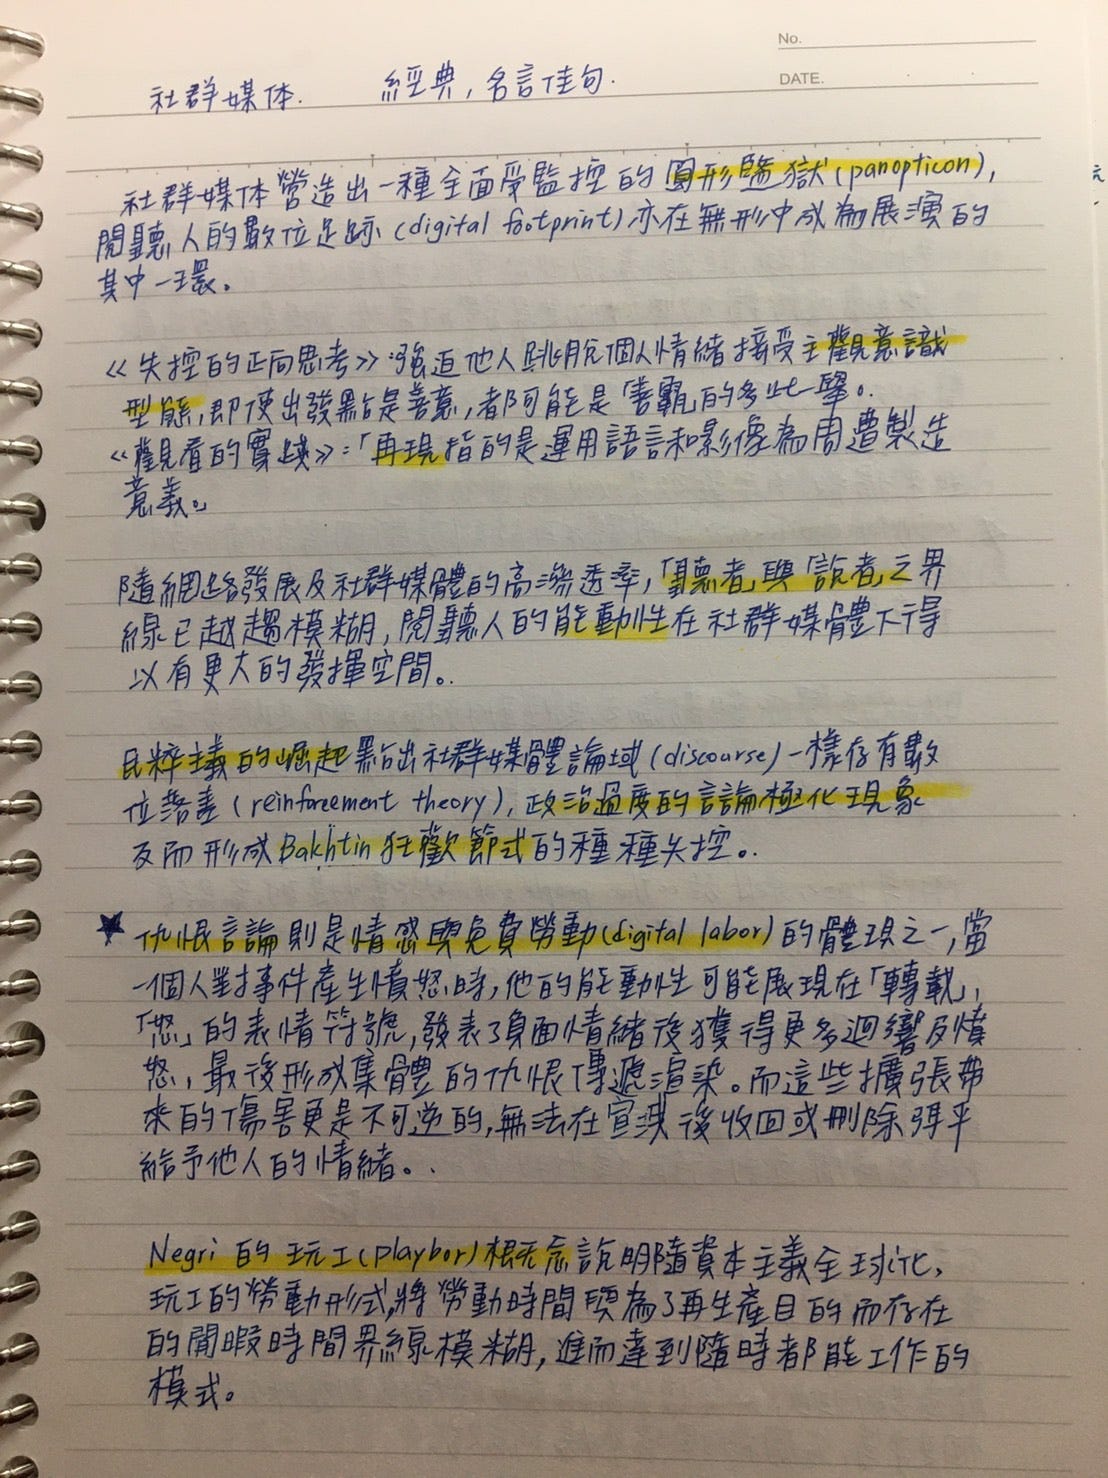 No.
DATE.
社群媒体. 經典，名言佳句.
社群媒体營造出一種全面受監控的圓形監獄(panopticon),
閱聽人的數位足跡(digital footprint)亦在無形中成為展演的
其中一環。
《失控的正向思考》:強迫他人跳脫個人情緒接受主觀意識
型態,即使出發點是善意,者阿能是「善霸」的多此一舉。
《觀看的實踐》:「再現指的是運用語言和影像為周遭製造
意義。」
隨網路發展及社群媒體的高滲透率,「聽者」與「說者」之界
線已越趨模糊,閱聽人的能動性在社群媒體下得
以有更大的發揮空間。.
民粹主義的崛起點出社群媒體論域(discourse)一樣存有數
位落差(reinforcement theory),政治過度的言論極化現象
反而形成Bakhtin狂歡節式的種種失控。.
★仇恨言論則是情感與免費勞動(digital labor)的體現之一,當
一個人對事件產生憤怒時,他的能動性可能展現在「轉載」、
「怒」的表情符號,發表了負面情緒後獲得更多迴響及憤
怒,最後形成集體的仇恨傳遞渲染。而這些擴張帶
來的傷害更是不可逆的,無法在宣洩後收回或刪除弭平
給予他人的情緒。.
Negri的玩工(playbor)概念說明隨資本主義全球化,
玩工的勞動形式,將勞動時間與為了再生產目的而存在
的閒暇時間界線模糊,進而達到隨時都能工作的
模式。